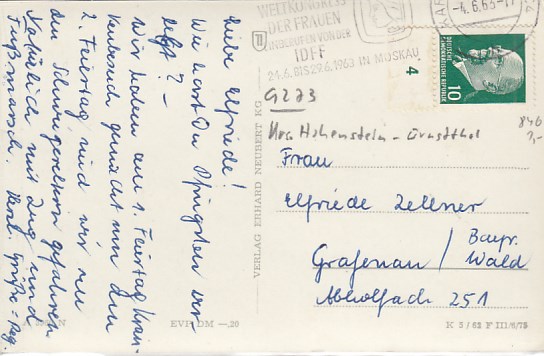 Liebe Elfriede!
Wie hast Du Pfingsten ver-
lebt? –
Wir haben am 1. Feiertag Kran-
kenbesuch gemacht und den
2. Feiertag sind wir zu
den Schwiegereltern gefahren
Natürlich mit Zug und
Fußmarsch. Herzl. Grüße
EVP DM —,20
VERLAG ERHARD NEUBERT KG
WELTKONGRESS
DER FRAUEN
EINBERUFEN VON DER
IDFF
24.6. BIS 29.6.1963 IN MOSKAU
-4.6.63-17
DEUTSCHE
DEMOKRATISCHE REPUBLIK
10
4
G273
Hohenstein - Ernstthal
846
Frau
Elfriede Zellner
Grafenau / Bayr.
Wald
251
K 5/62 F III/6/75